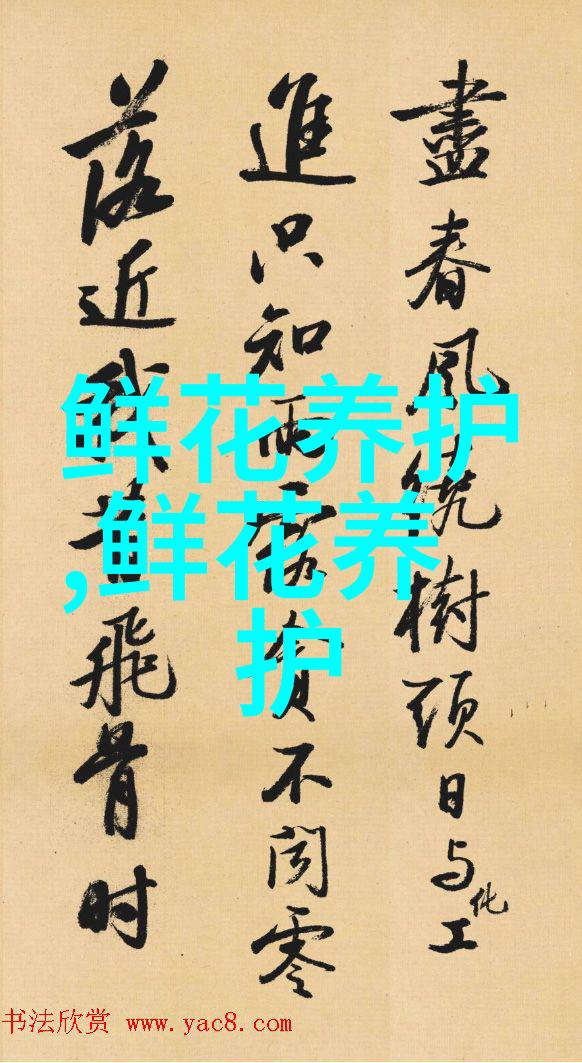 盡春風繞樹頭日与化工
進只知雨露貪不聞零
落近我昔飛骨时
鲜花养护
,鲜花养
护
书法欣赏 www.yac8.com